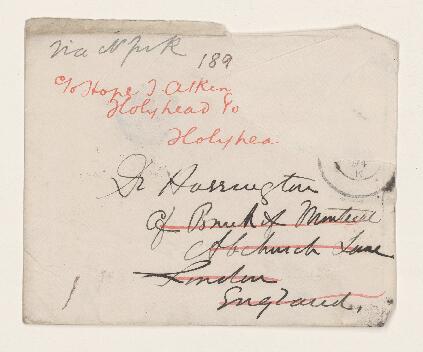 Via N York
189
c/o Hope T Atken
Holyhead
Holyhea
Dr Harrington
c/ Bank of Montreal
Abchurch Lane
London
England.